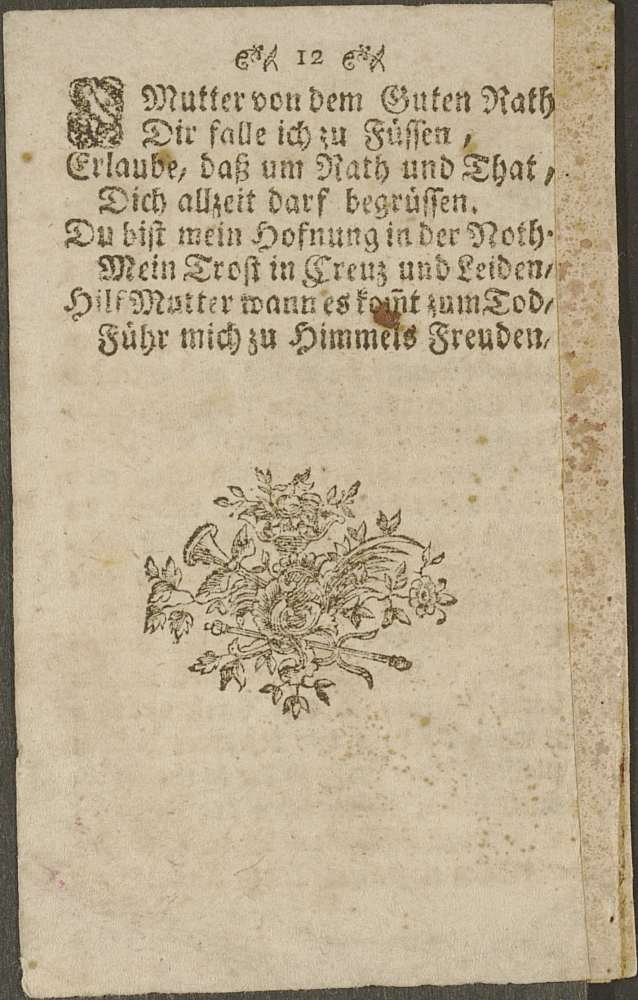 12
O Mutter von dem Guten Rath
Dir falle ich zu Füssen,
Erlaube, daß um Rath und That,
Dich allzeit darf begrüssen.
Du bist mein Hofnung in der Noth.
Mein Trost in Creuz und Leiden,
Hilf Mutter wann es kom̃t zum Tod,
Führ mich zu Himmels Freuden,